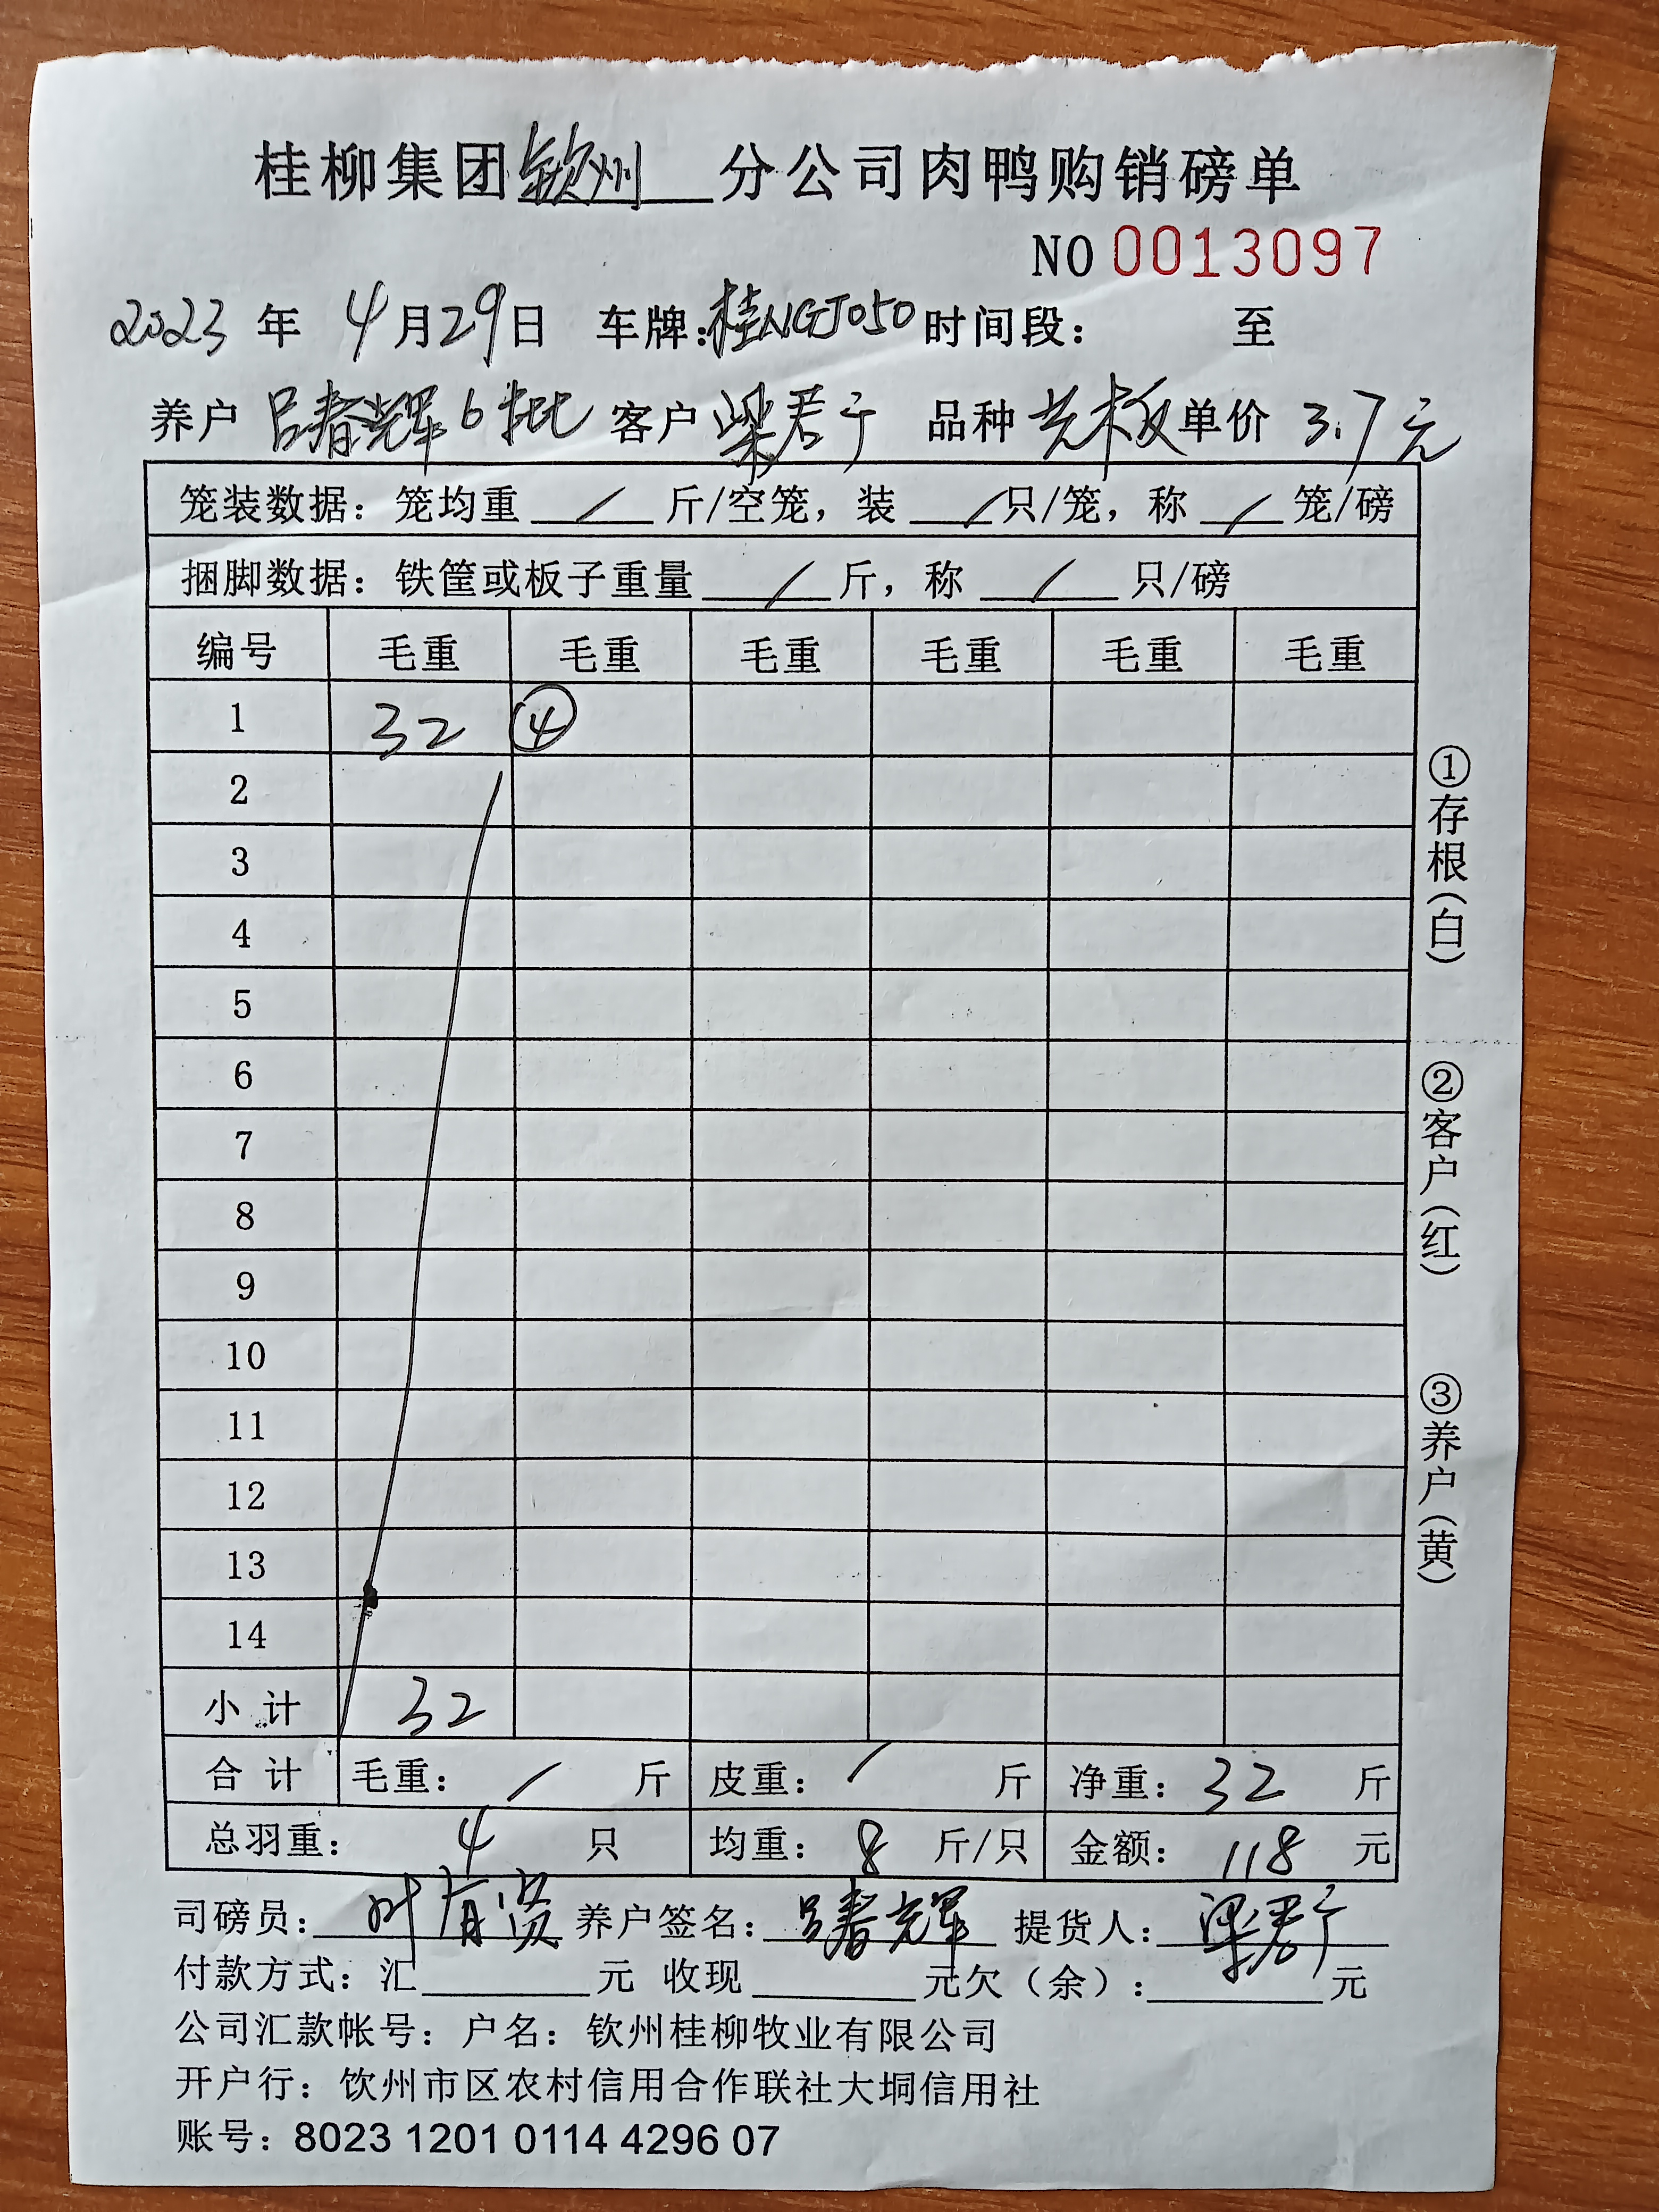 桂柳集团钦州分公司肉鸭购销磅单
NO 0013097
2023 年 4 月 29 日 车牌：桂NGJ050 时间段： 至
养户 吕春辉6批 客户 梁君宁 品种 光板 单价 3.7元
笼装数据：笼均重 / 斤/空笼，装 / 只/笼，称 / 笼/磅
捆脚数据：铁筐或板子重量 / 斤，称 / 只/磅
编号 毛重 毛重 毛重 毛重 毛重 毛重
1 32 ④
2
3
4
5
6
7
8
9
10
11
12
13
14
小 计 32
合 计 毛重： / 斤 皮重： / 斤 净重：32 斤
总羽重： 4 只 均重： 8 斤/只 金额： 118 元
司磅员：叶有贤 养户签名：吕春辉 提货人：梁君宁
付款方式：汇 元 收现 元欠（余）： 元
公司汇款帐号：户名：钦州桂柳牧业有限公司
开户行：钦州市区农村信用合作联社大垌信用社
账号：8023 1201 0114 4296 07
①存根（白）
②客户（红）
③养户（黄）